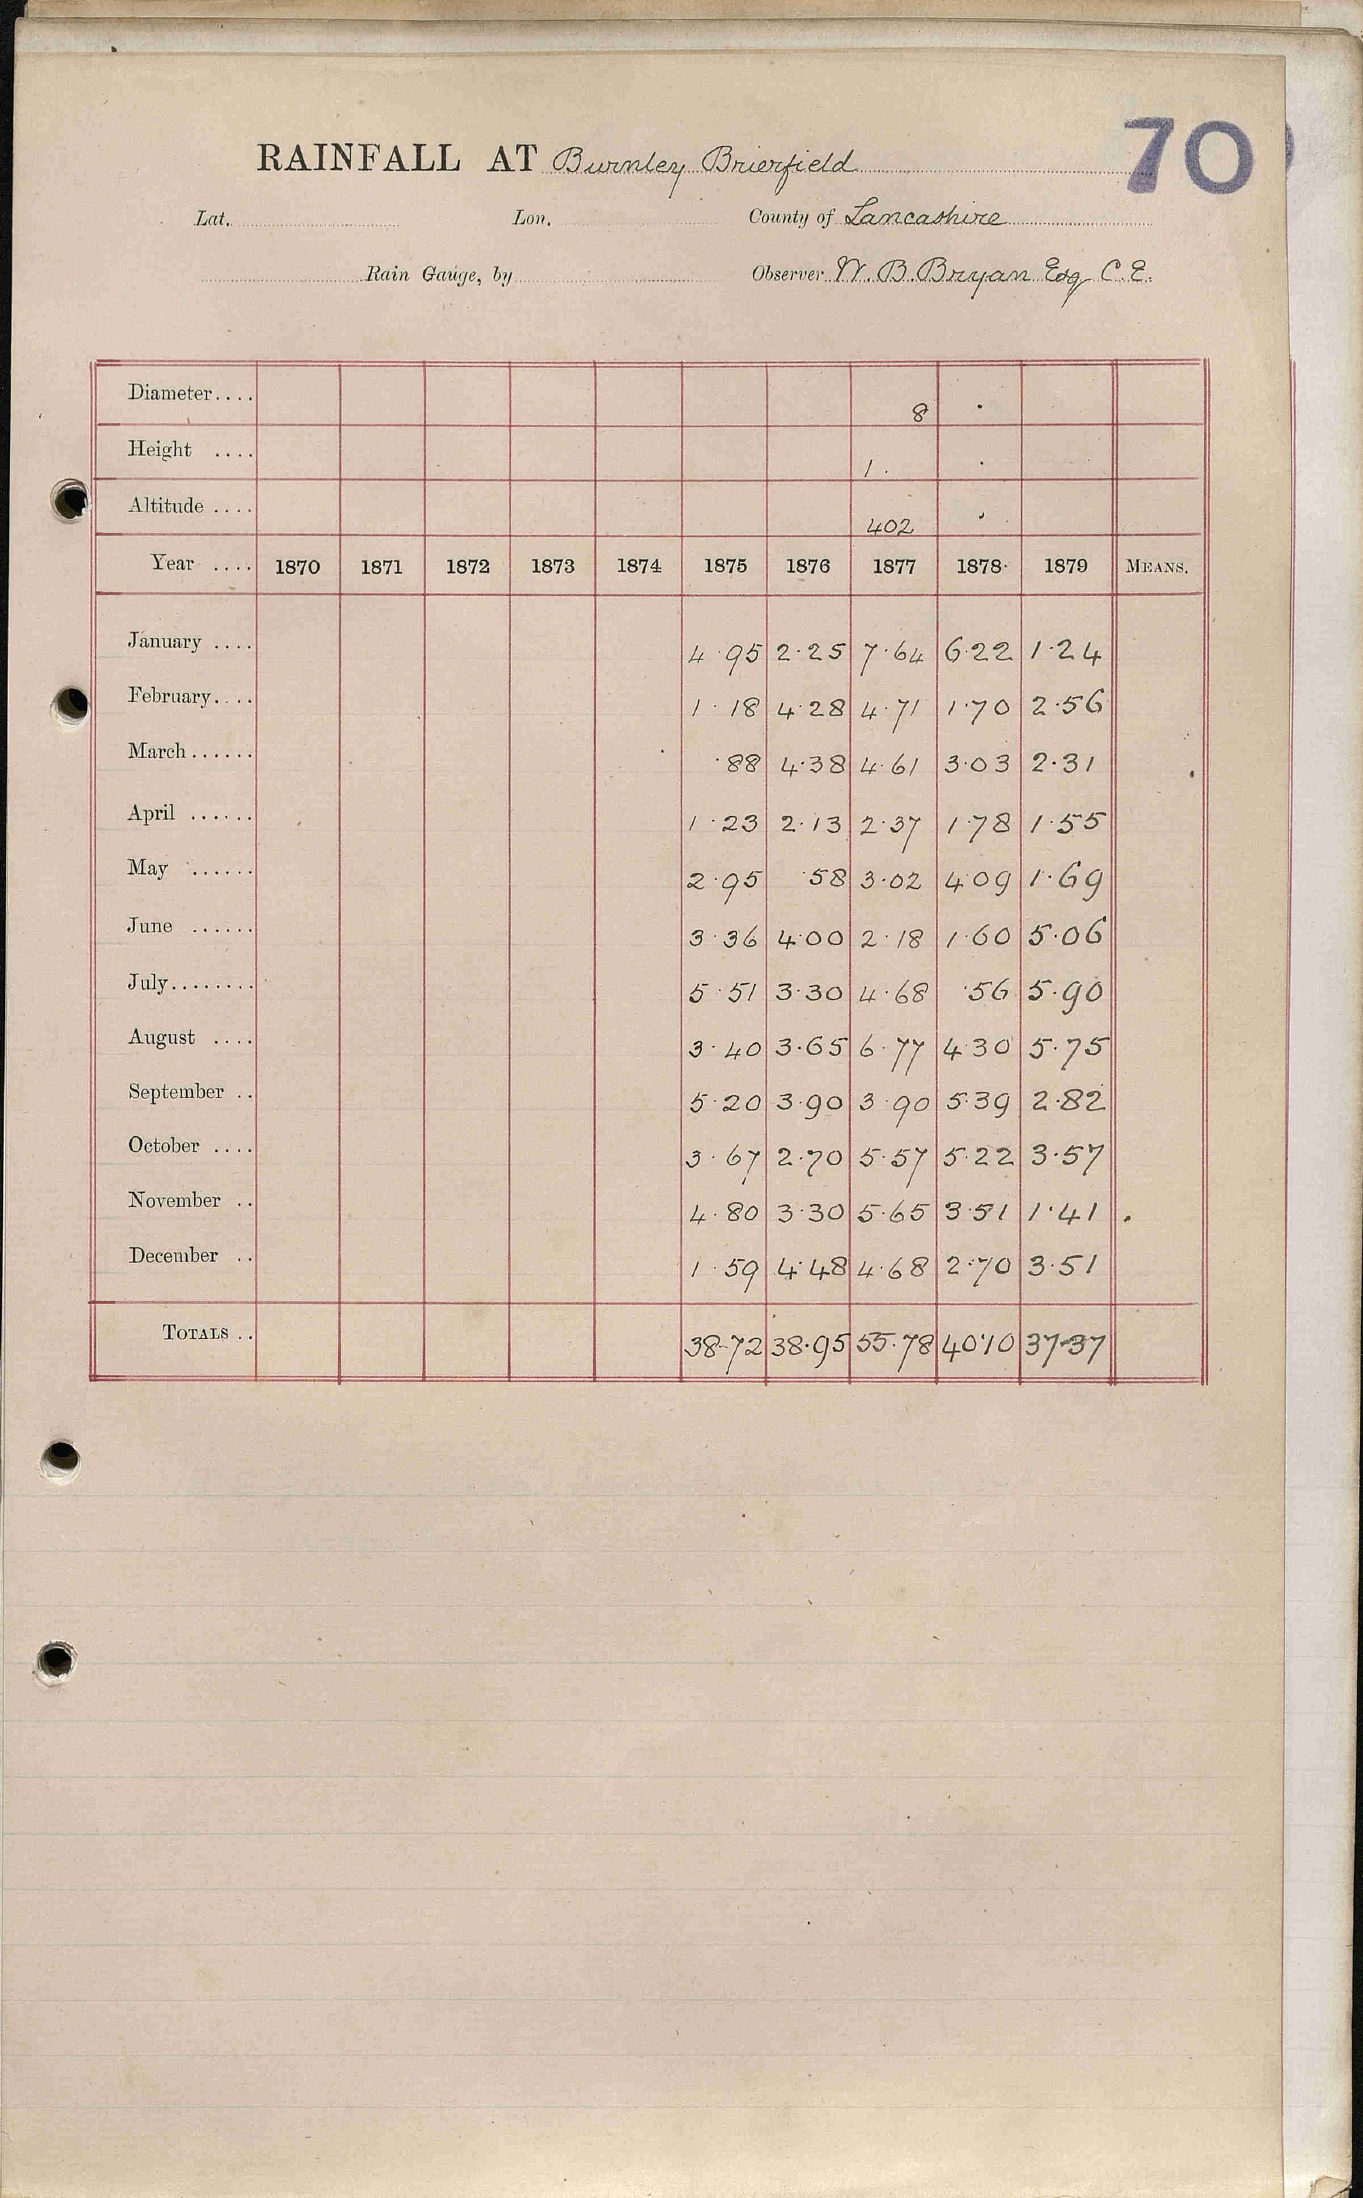 70
RAINFALL AT Burnley Brierfield
Lat. Lon. County of Lancashire
Rain Gauge, by Observer W. B. Bryan Esq C. E.
Diameter.... 8 ·
Height .... 1 . ·
Altitude .... 402 ·
Year .... 1870 1871 1872 1873 1874 1875 1876 1877 1878 1879 MEANS.
January .... 4·95 2·25 7·64 6·22 1·24
February.... 1·18 4·28 4·71 1·70 2·56
March...... ·88 4·38 4·61 3·03 2·31
April ...... 1·23 2·13 2·37 1·78 1·55
May ...... 2·95 ·58 3·02 4·09 1·69
June ...... 3·36 4·00 2·18 1·60 5·06
July........ 5·51 3·30 4·68 ·56 5·90
August .... 3·40 3·65 6·77 4·30 5·75
September .. 5·20 3·90 3·90 5·39 2·82
October .... 3·67 2·70 5·57 5·22 3·57
November .. 4·80 3·30 5·65 3·51 1·41
December .. 1·59 4·48 4·68 2·70 3·51
TOTALS .. 38·72 38·95 55·78 40·10 37·37